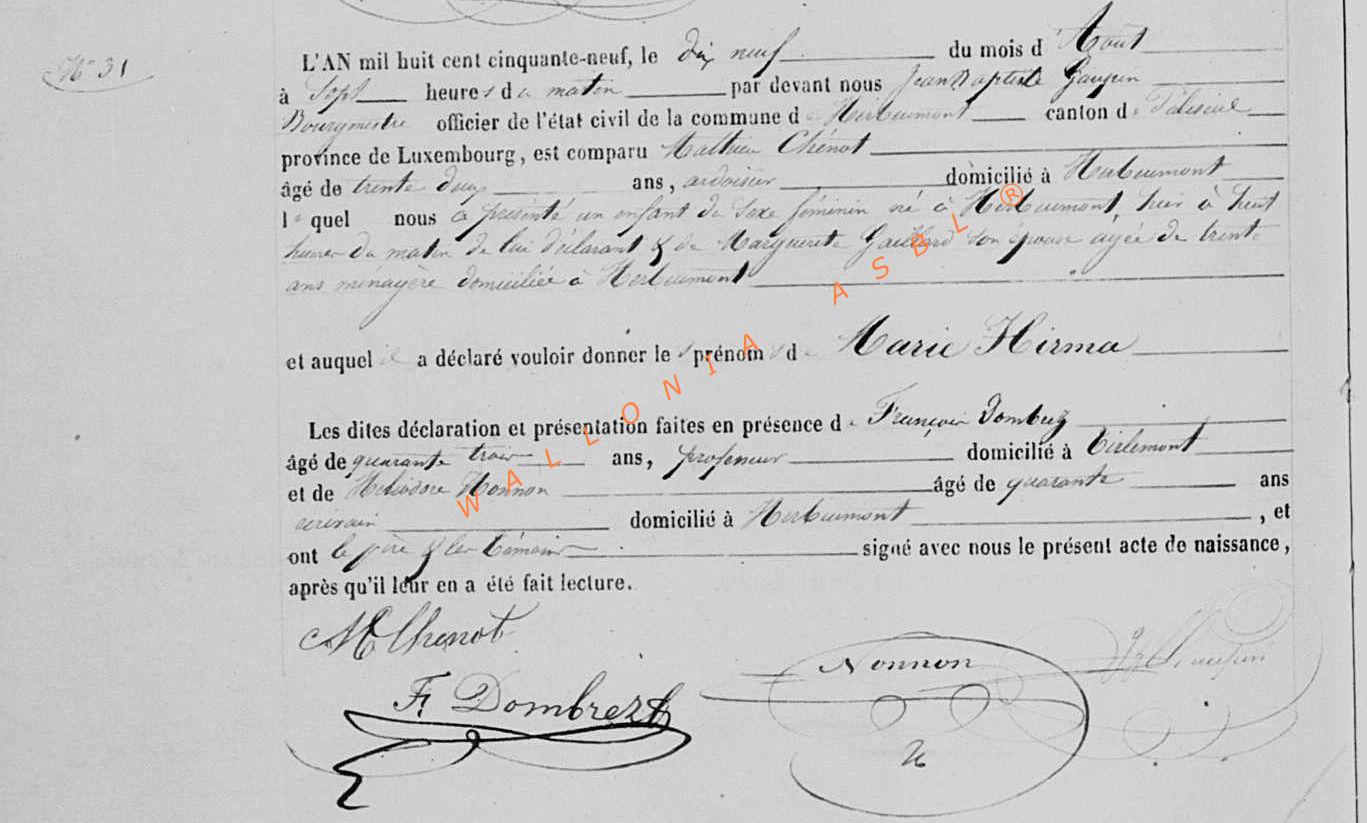 N° 31
L'AN mil huit cent cinquante-neuf, le dix neuf du mois d'Août
à Sept heures du matin par devant nous Jean Baptiste Gaupin
Bourgmestre officier de l'état civil de la commune de Herbeumont canton de Paliseul
province de Luxembourg, est comparu Mathieu Chénot
âgé de trente deux ans, ardoisier domicilié à Herbeumont
lequel nous a présenté un enfant du sexe féminin né à Herbeumont, hier à huit
heures du matin de lui déclarant & de Marguerite Gaillard son épouse agée de trente
ans ménagère domiciliée à Herbeumont
et auquel il a déclaré vouloir donner les prénoms de Marie Hirma
Les dites déclaration et présentation faites en présence de François Dombrez
âgé de quarante trois ans, professeur domicilié à Tirlemont
et de Héliodore Nonnon âgé de quarante ans
écrivain domicilié à Herbeumont, et
ont le père & les témoins signé avec nous le présent acte de naissance,
après qu'il leur en a été fait lecture.
M Chenot
Nonnon
F. Dombrez
WALLONIA ASBL ®